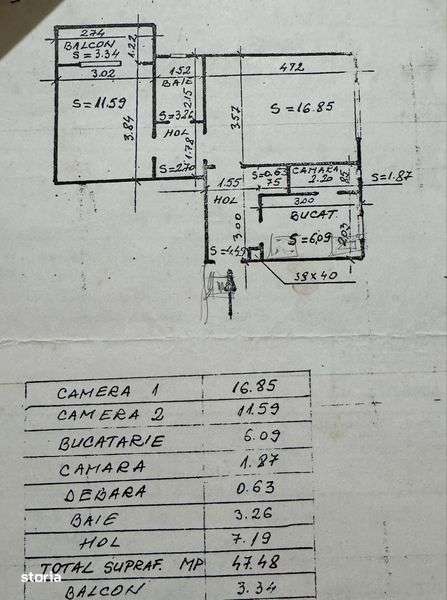 2.74
BALCON
1.22
S = 3.34
3.02
1.52
4.72
BAIE
S = 11.59
2.15
S = 3.26
S = 16.85
3.84
HOL
3.57
1.78
S = 2.70
S = 0.63
75
CAMARA
2.20
S = 1.87
1.55
HOL
3.00
BUCAT
3.00
S = 6.09
2.03
S = 4.49
38 x 40
CAMERA 1 16.85
CAMERA 2 11.59
BUCATARIE 6.09
CAMARA 1.87
DEBARA 0.63
BAIE 3.26
HOL 7.19
TOTAL SUPRAF. MP 47.48
BALCON 3.34
storia